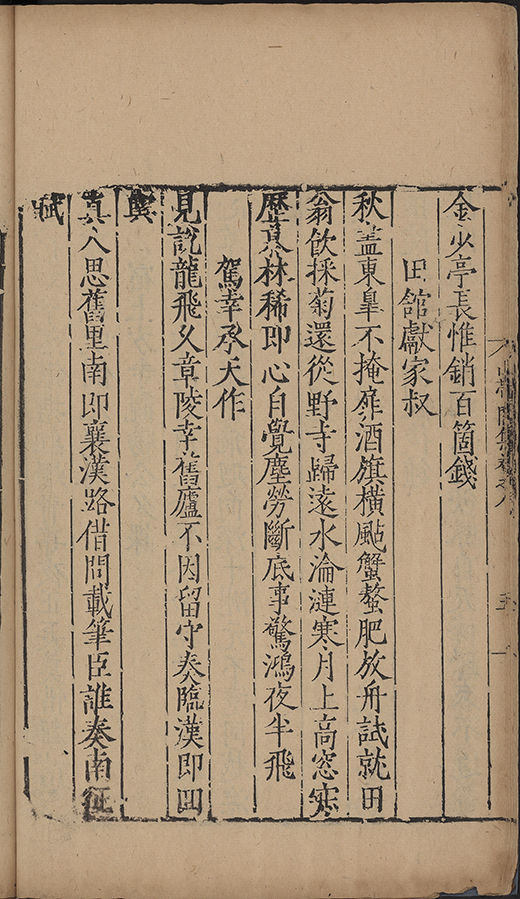 金少亭長惟銷百箇錢
田舘獻家叔
秋蓋東臯不掩扉酒旗横颭蟹螯肥放舟試就田
翁飲採菊還從野寺歸遠水淪漣寒月上高窓寒
歷暮林稀即心自覺塵勞斷底事驚鴻夜半飛
駕幸承天作
見說龍飛久章陵幸舊廬不因留守奏臨漢即回
輿
真人思舊里南即襄漢路借問載筆臣誰奏南征
賦